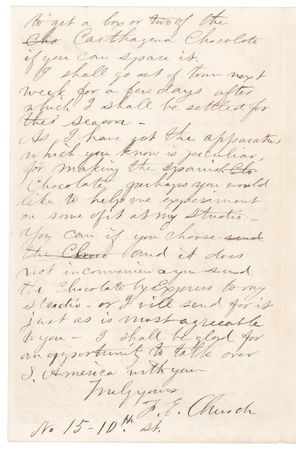 to get a box or two of the
Cho Carthagena Chocolate
if you can spare it.
I shall go out of town next
week for a few days after
which I shall be settled for
the season -
As I have got the apparatus
which you know is peculiar,
for making the Spanish Cho
Chocolate, perhaps you would
like to help me experiment
on some of it at my Studio -
You can if you choose send
the Choco and it does
not inconvenience you send
the Chocolate by Express to my
studio - or I will send for it
just as is most agreeable
to you - I shall be glad for
an opportunity to talk over
S. America with you
Truly yours
F. E. Church
No 15 - 10th St.